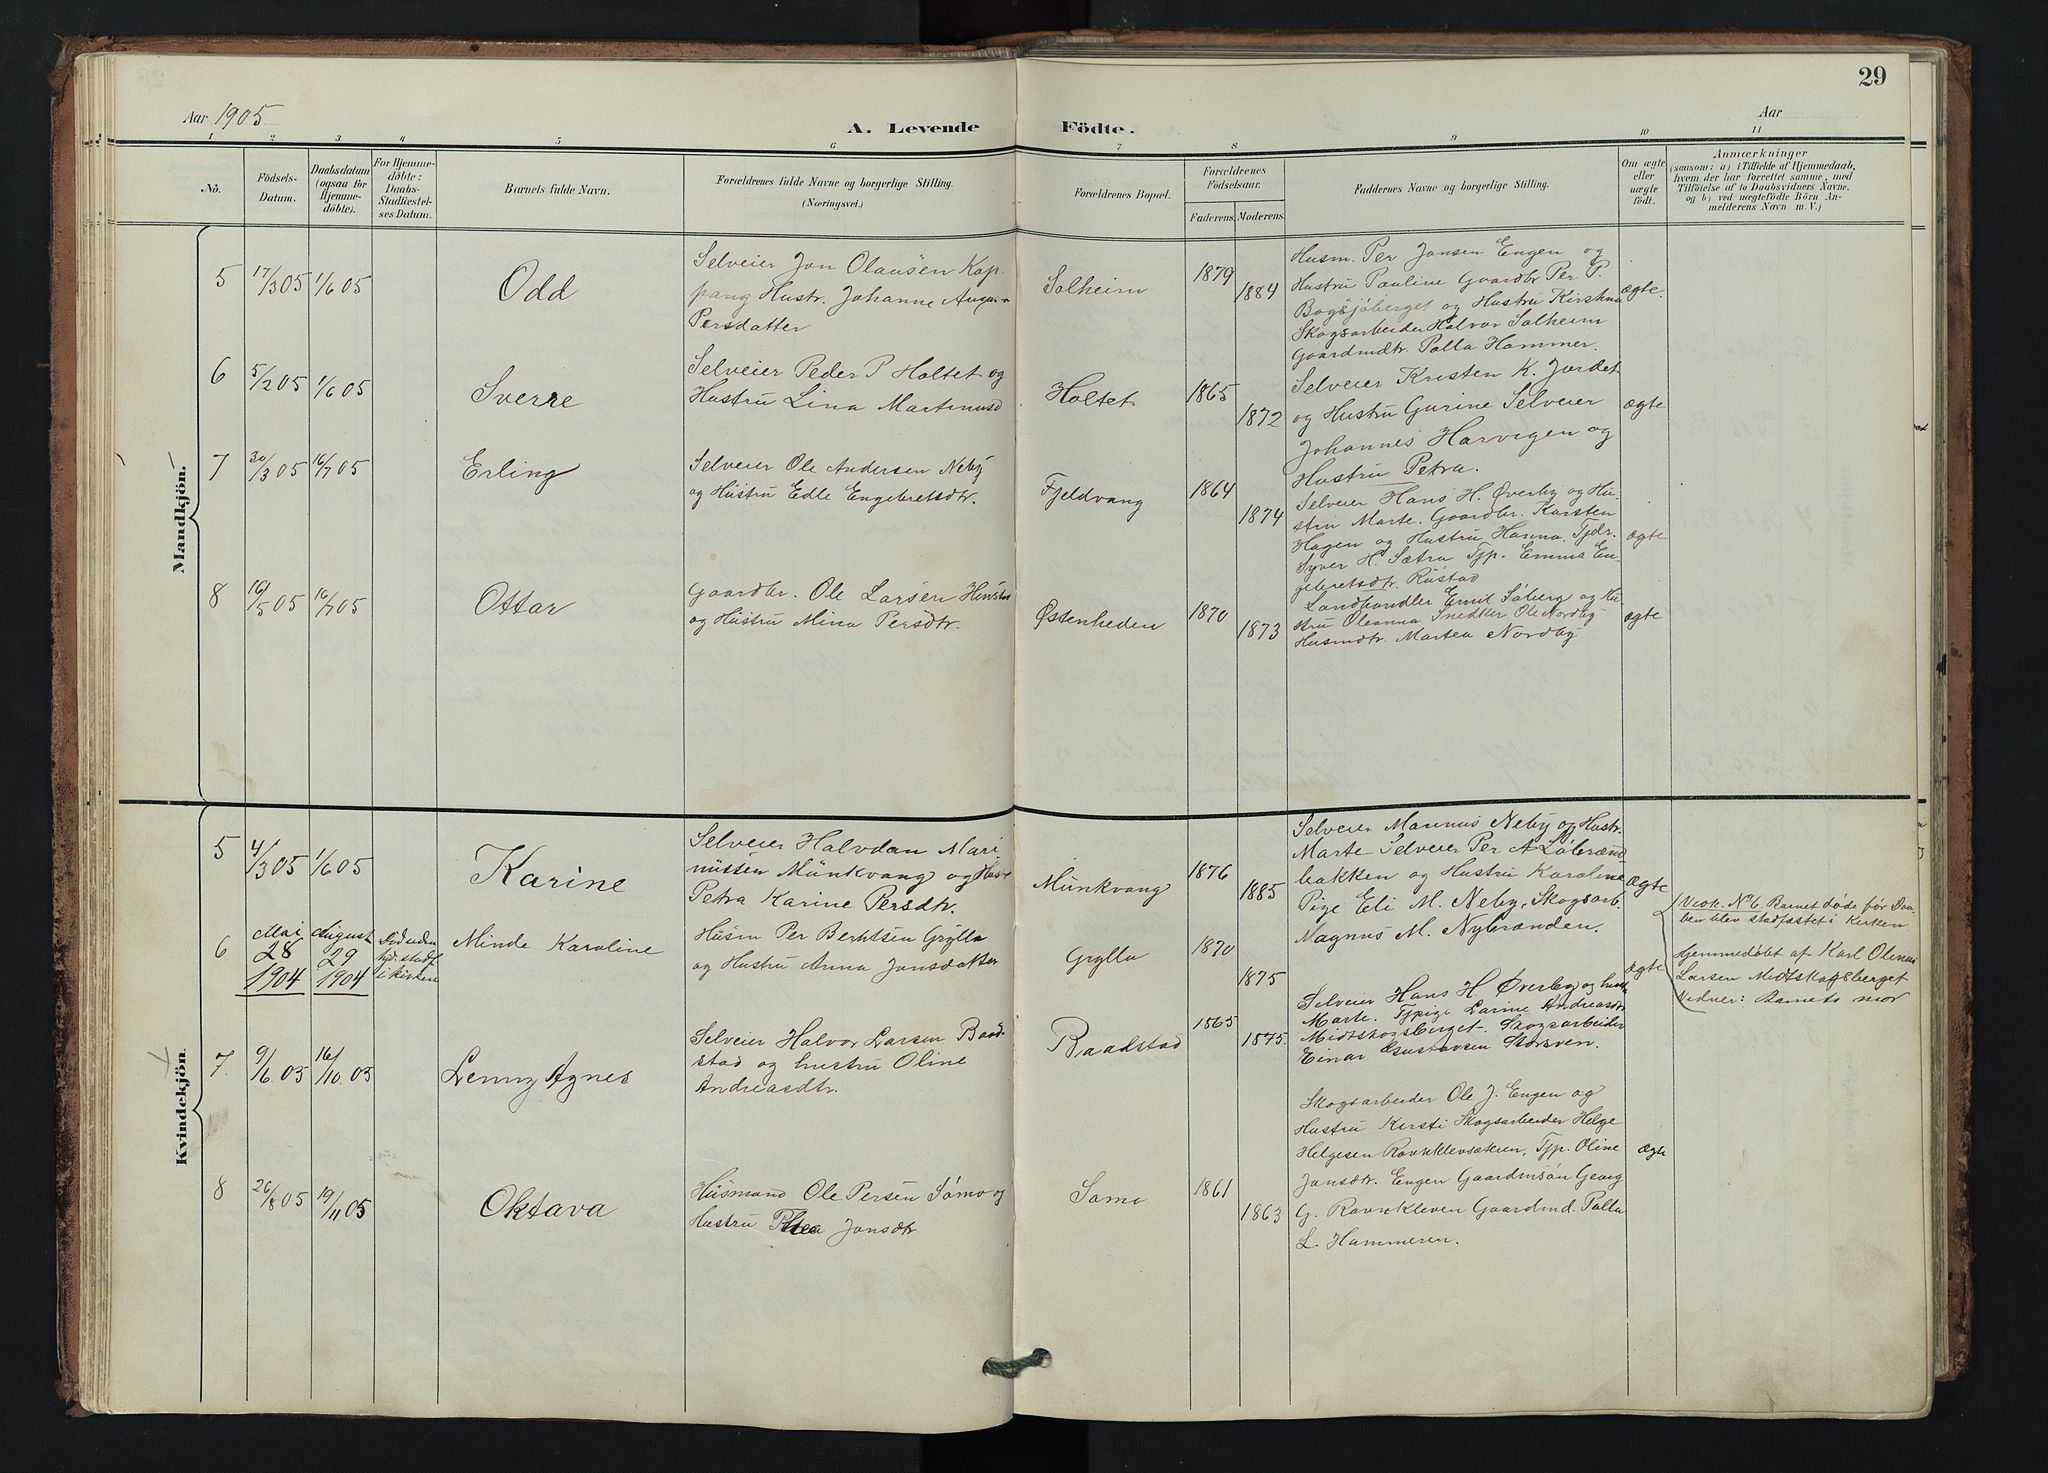 29
Aar 1905
Aar
A. Levende Födte.
1 2 3 4 5 6 7 8 9 10 11
No.
Födsels-
Datum.
Daabsdatum
(ogsaa for
Hjemme-
döbte).
For Hjemme-
döbte:
Daabs-
Stadfæstel-
ses Datum.
Barnets fulde Navn.
Forældrenes fulde Navne og borgerlige Stilling.
(Næringsvei.)
Forældrenes Bopæl.
Forældrenes
Födselsaar.
Faderens. Moderens.
Faddernes Navne og borgerlige Stilling.
Om ægte
eller
uægte
födt.
Anmærkninger
(saasom: a) i Tilfælde af Hjemmedaab,
hvem der har forrettet samme, med
Tilföielse af to Daabsvidners Navne,
og b) ved uægtefödte Börn An-
melderens Navn m. V.)
Mandkjön.
5
17/3 05
1/6 05
Odd
Selveier Jon Olausen Kop-
pang Hustr. Johanne
Persdatter
Solheim
1879
1884
Husm. Per Jonsen Engen og
Hustru Pauline Gaardbr Per P.
Bogsjöberget og Hustru
Skogsarbeider Halvor Solheim
Gaardmdtr. Palla Hammer.
ægte.
6
5/2 05
1/6 05
Sverre
Selveier Peder P Holtet og
Hustru Lina Martinusd
Holtet
1865
1872
Selveier Kristen K. Jordet
og Hustru Gurine Selveier
Johannes Harvigen og
Hustru Petra.
ægte
7
30/3 05
16/7 05
Erling
Selveier Ole Andersen Neby
og Hustru Edle Engebretsdtr.
Fjeldvang
1864
1874
Selveier Hans H. Øverby og Hu-
stru Marte. Gaardbr. Karsten
Hagen og Hustru Hanna.
Syver H. Sætra Tjp. Emma En-
gebretsdtr. Rustad
ægte
8
16/5 05
16/7 05
Ottar
Gaardbr. Ole Larsen
og Hustru Mina Persdtr.
Østenheden
1870
1873
Landhandler Emil Söberg og Hu
stru Oleanna Snedker Ole Nordby
Husmdtr. Martea Nordby
ægte
Kvindekjön.
5
4/3 05
1/6 05
Karine
Selveier Halvdan Mari
nussen Munkvang og
Petra Karine Persdtr.
Munkvang
1876
1885
Selveier Mannus Neby og Hustr.
Marte Selveier Per
bakken og Hustru Karoline
Pige Eli M. Neby, Skogsarb.
Magnus M. Nybrænden.
Ægte
6
Mai
28
1904
August
29
1904
i kirken
Minde Karoline
Husm Per Berntsen Grylla
og Hustru Anna Jonsdatter
Grylla
1870
1875
ægte
Vedk. No 6. Barnet døde før Daa-
ben blev stadfæstet i Kirken
Hjemmedøbt af Karl Olenus
Larsen Midtskogsberget
Vidner: Barnets mor
7.
9/6 05
16/10 05
Lenny Agnes
Selveier Halvor Larsen Baad-
stad og hustru Oline
Andreasdtr.
Baadstad
1865
1875.
Selveier Hans H Øverby og hustr
Marte. Tjpige Larine Andreasdtr
Midtskogsberget. Skogsarbeider
Einar Gustavsen Storsven.
8
26/8 05
19/11 05
Oktava
Husmand Ole Persen Sömo og
Hustru Jonsdtr
Somo
1861
1863
Skogsarbeider Ole J. Engen og
Hustru Kirsti Skogsarbeider Helge
Helgesen Tjp. Oline
Jonsdtr. Engen Gaardmsön Georg
G. Ravnkleven Gaardmd. Palla
L. Hammeren.
ægte